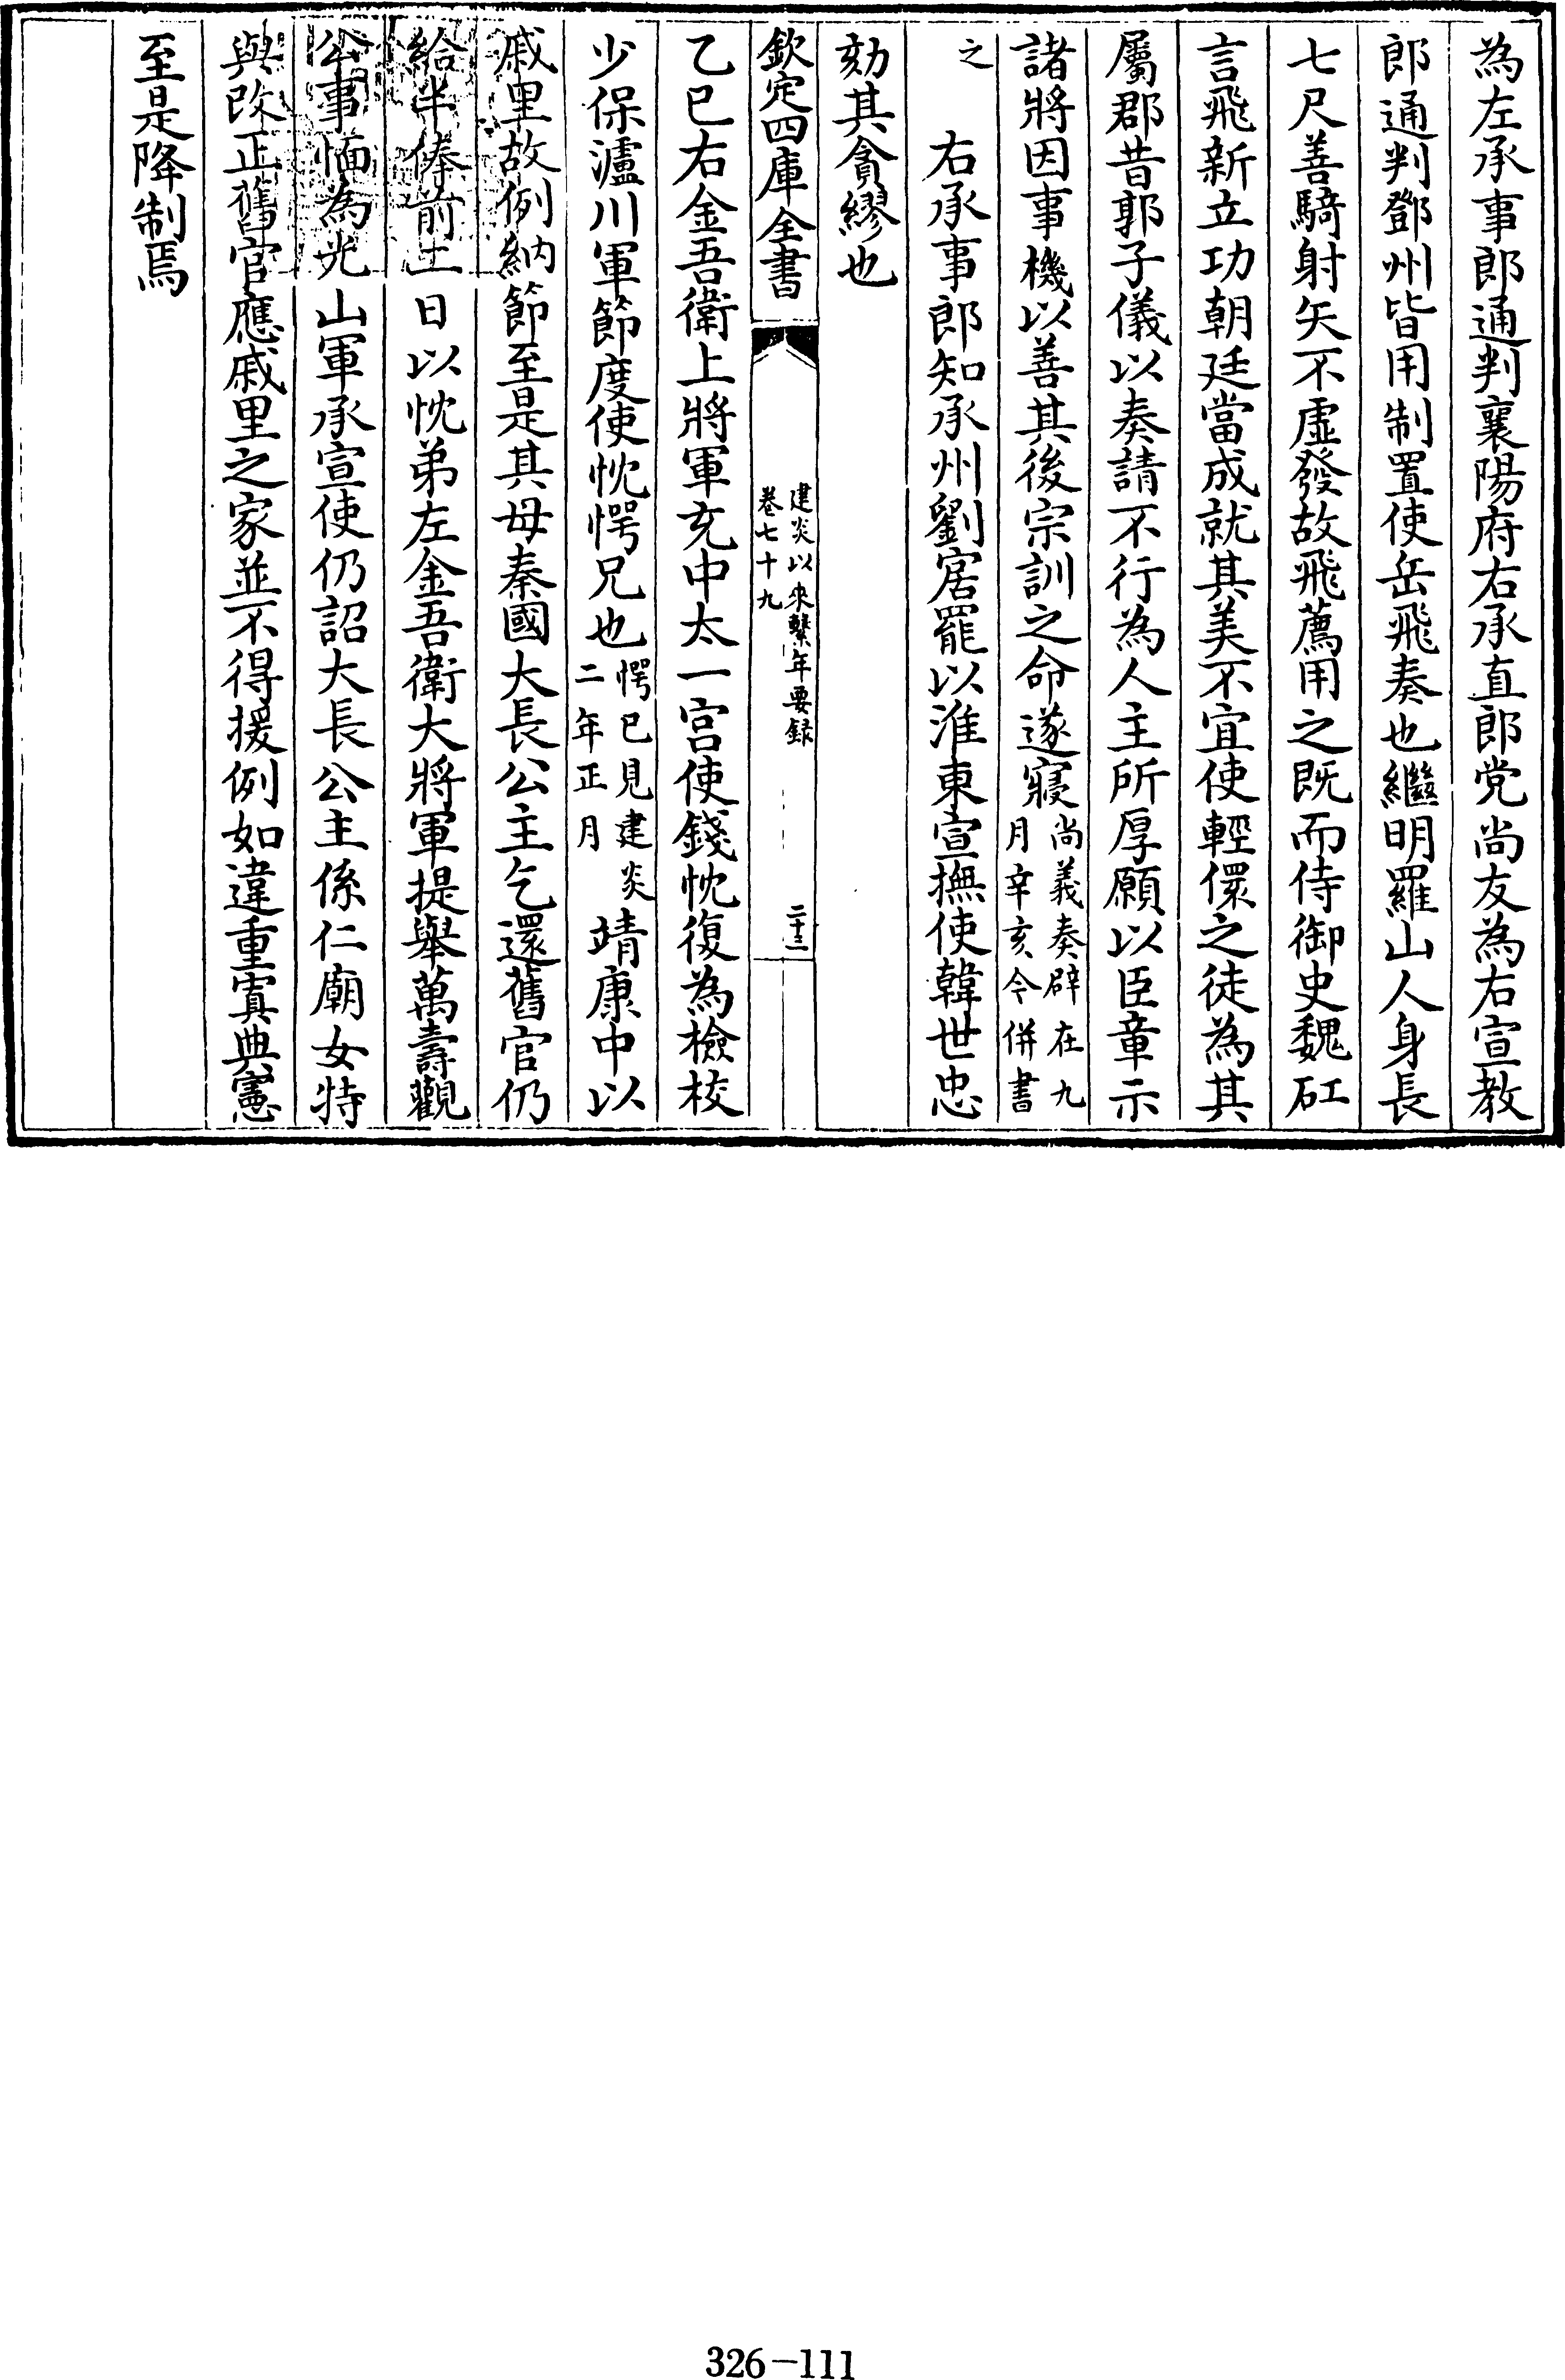 為左承事郎通判襄陽府右承直郎党尚友為右宣教
郎通判鄧州皆用制置使岳飛奏也繼明羅山人身長
七尺善騎射矢不虛發故飛薦用之既而侍御史魏矼
言飛新立功朝廷當成就其美不宜使輕儇之徒為其
屬郡昔郭子儀以奏請不行為人主所厚願以臣章示
諸將因事機以善其後宗訓之命遂寢尚義奏辟在九
月辛亥今併書
之
右承事郎知承州劉寍罷以淮東宣撫使韓世忠
劾其貪繆也
欽定四庫全書
建炎以來繫年要録
卷七十九
二十三
乙巳右金吾衛上將軍充中太一宮使錢忱復為檢校
少保瀘川軍節度使忱愕兄也愕已見建炎
二年正月
靖康中以
戚里故例納節至是其母秦國大長公主乞還舊官仍
給半俸前二日以忱弟左金吾衛大將軍提舉萬壽觀
公事愐為光山軍承宣使仍詔大長公主係仁廟女特
與改正舊官應戚里之家並不得援例如違重寘典憲
至是降制焉
326-111